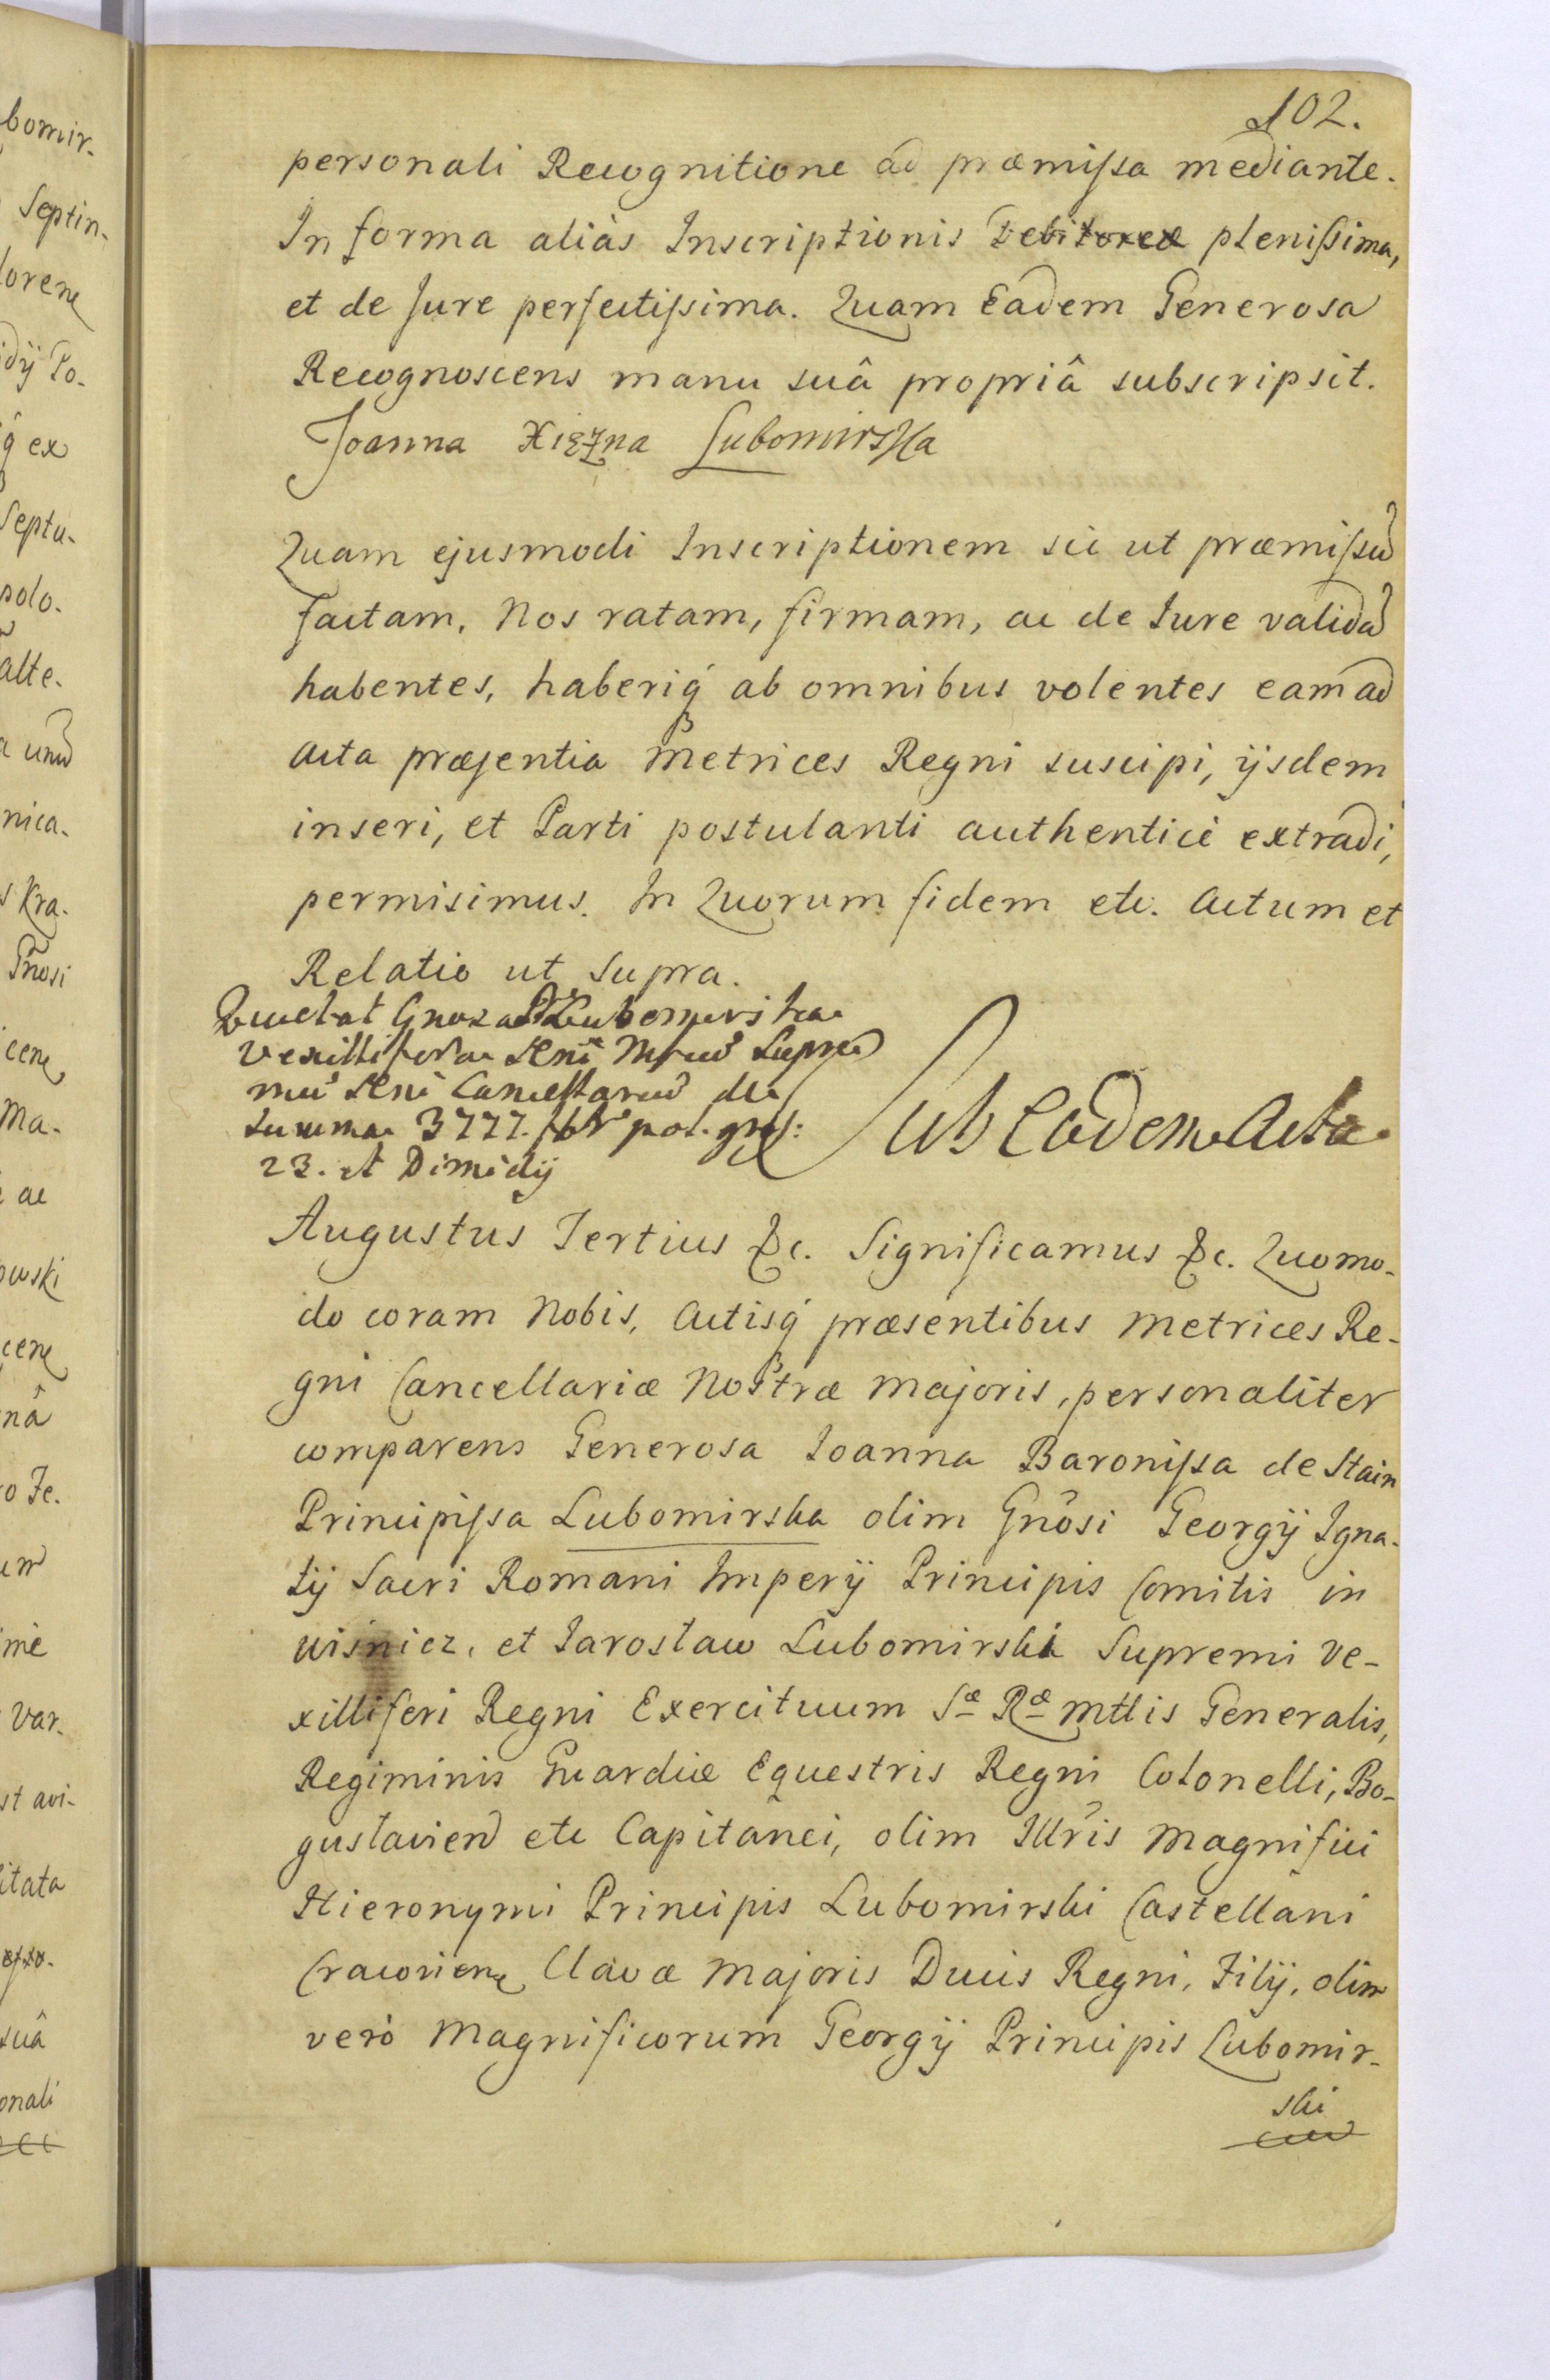 102.
personali Recognitione ad præmissa mediante.
In forma aliàs Inscriptionis Debitoreæ plenissima,
et de Jure perfectissima. Quam Eadem Generosa
Recognoscens manu suâ propriâ subscripsit.
Joanna Xiężna Lubomirska
Quam ejusmodi Inscriptionem sic ut præmissū
factam. Nos ratam, firmam, ac de Jure validā
habentes, haberiq́ ab omnibus volentes eam ad
Acta præsentia Metrices Regni suscipi, ijsdem
inseri, et Parti postulanti authenticè extradi,
permisimus. In Quorum fidem etc. Actum et
Relatio ut supra.
Lubomirska
Vexilliferae
Cancellarium de
summa 3777. pol. gros:
23. et Dimidij
Sub Eadem Acta
Augustus Tertius &c. Significamus &c. Quomo-
do coram Nobis, Actisq́ præsentibus Metrices Re-
gni Cancellariæ Nostræ Majoris, personaliter
comparens Generosa Joanna Baronissa de Stain
Principissa Lubomirska olim Gñosi Georgij Igna-
tij Sacri Romani Imperij Principis Comitis in
Wiśnicz, et Jarosław Lubomirski Supremi Ve-
xilliferi Regni Exercituum Sæ Ræ Mttis Generalis,
Regiminis Guardiæ Equestris Regni Colonelli, Bo-
gusłavien etc Capitanei, olim Illr̃is Magnifici
Hieronymi Principis Lubomirski Castellani
Cracovien Clavæ Majoris Ducis Regni, Filij, olim
verò Magnificorum Georgij Principis Lubomir-
ski